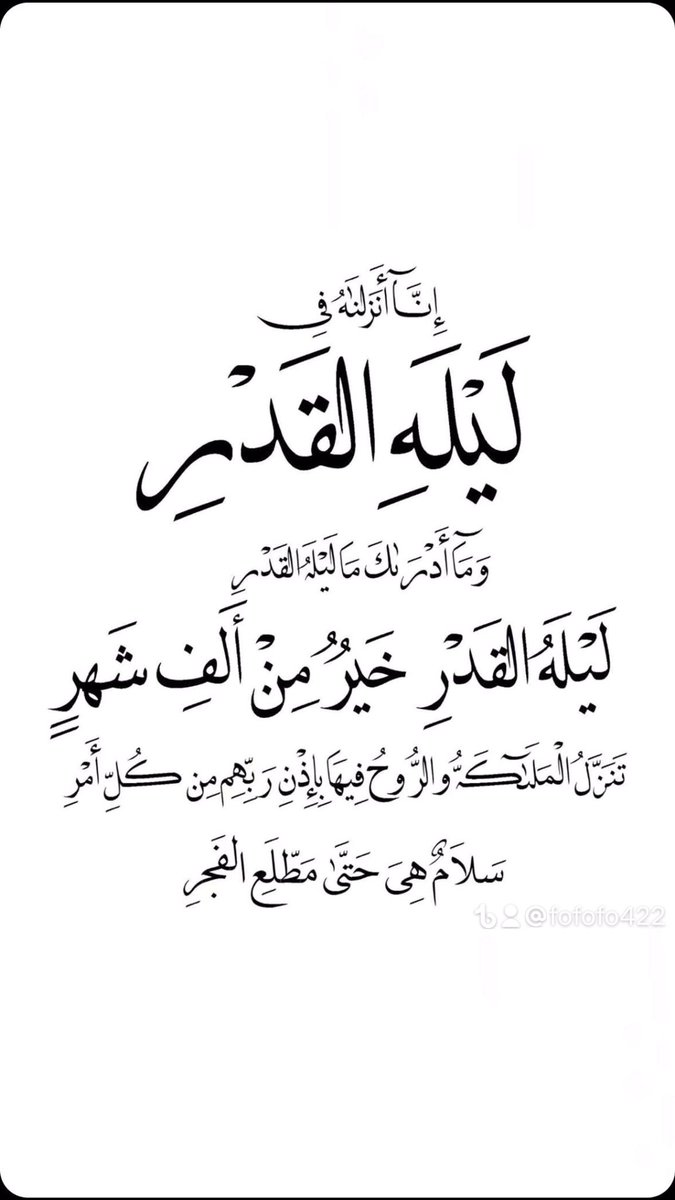 إِنَّآ أَنزَلْنَٰهُ فِى
لَيْلَهِ القَدْرِ
وَمَآ أَدْرَىٰكَ مَا لَيْلَهُ القَدْرِ
لَيْلَهُ القَدْرِ خَيْرٌ مِنْ أَلَفِ شَهرٍ
تَنَزَّلُ الْمَلَٰٓئكَهُ والرُّوحُ فِيهَا بِإِذْنِ رَبِّهِم مِن كُلِّ أَمْرٍ
سَلاَمٌ هِىَ حَتَّىٰ مَطْلَعِ الفَجرِ
@fofofo422